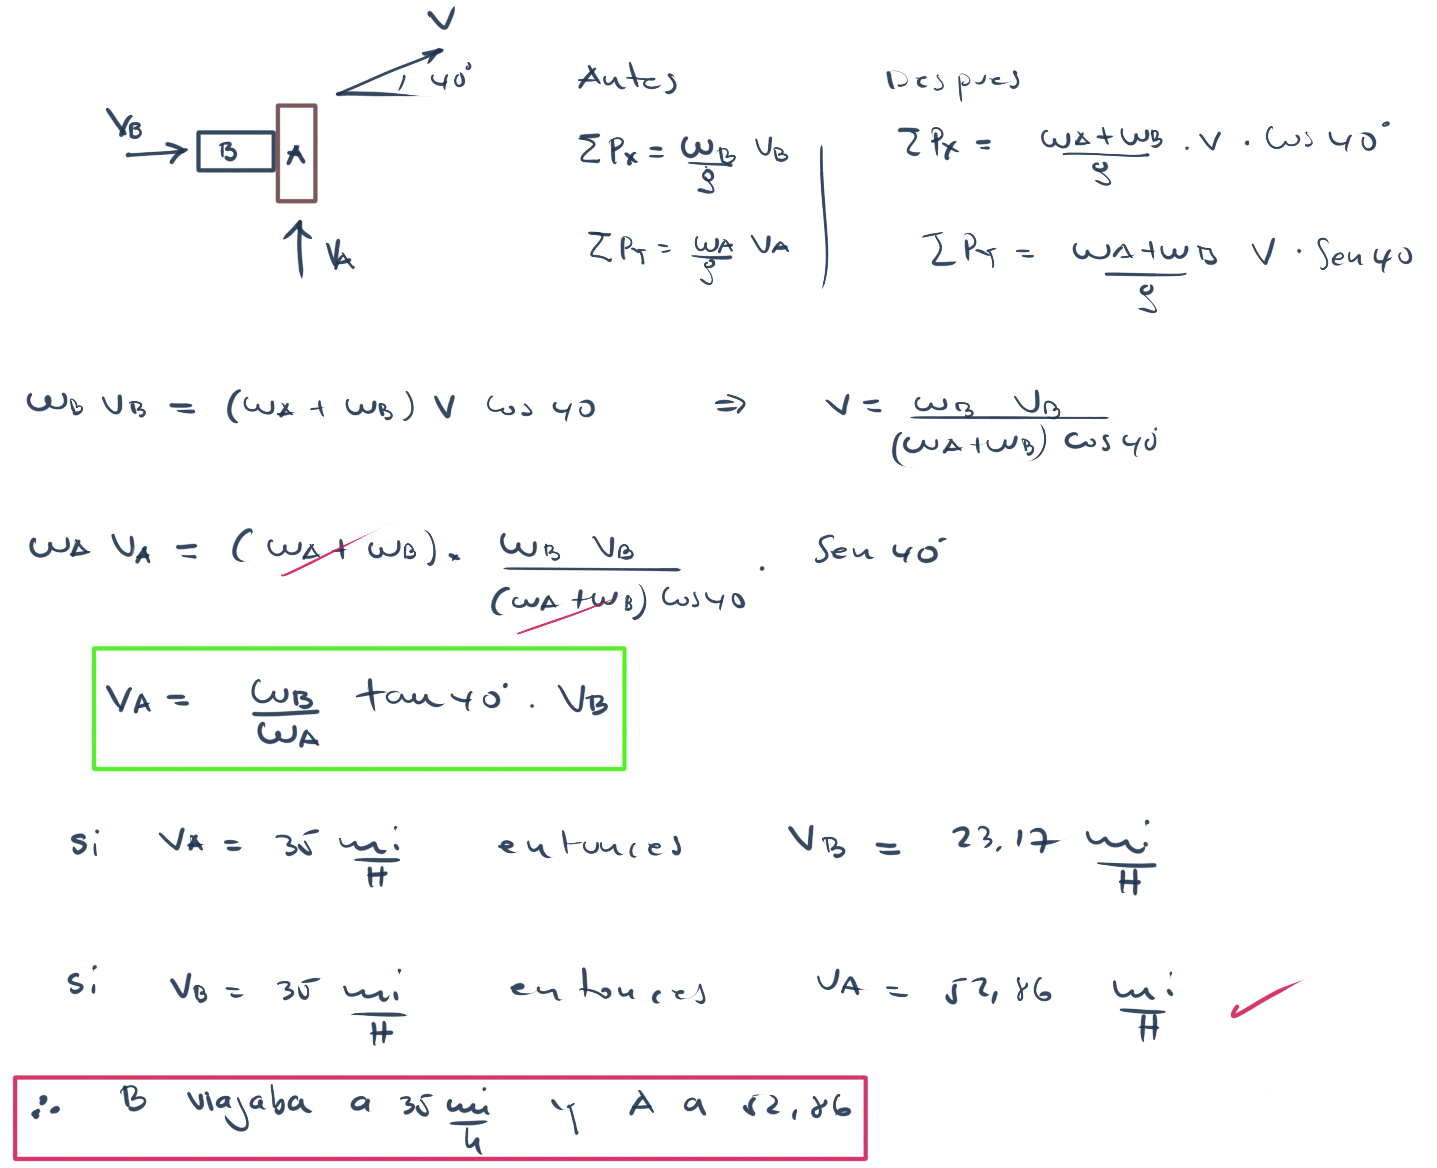 V
40°
V_B
B
A
V_A
Antes
Despues
ΣPx = ω_B/g V_B
ΣPx = ω_A+ω_B/g . V . Cos 40°
ΣPy = ω_A/g V_A
ΣPy = ω_A+ω_B/g V · Sen 40
ω_B V_B = (ω_A + ω_B) V Cos 40 ⇒ V = ω_B V_B/(ω_A+ω_B) Cos 40°
ω_A V_A = (ω_A + ω_B). ω_B V_B/(ω_A+ω_B) Cos 40 . Sen 40°
V_A = ω_B/ω_A tan 40° . V_B
si V_A = 35 mi/H entonces V_B = 23,17 mi/H
si V_B = 35 mi/H entonces V_A = 52,86 mi/H ✓
∴ B viajaba a 35 mi/h y A a 52,86